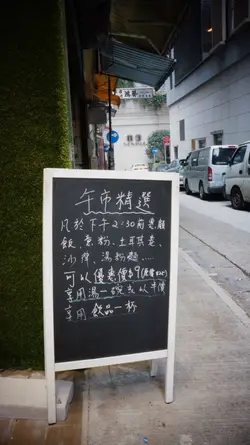 午市精選
凡於下午2:30前惠顧
飯、意粉、土耳其卷、
沙律、湯粉麵....
可以優惠價$9
享用湯一碗
享用飲品一杯